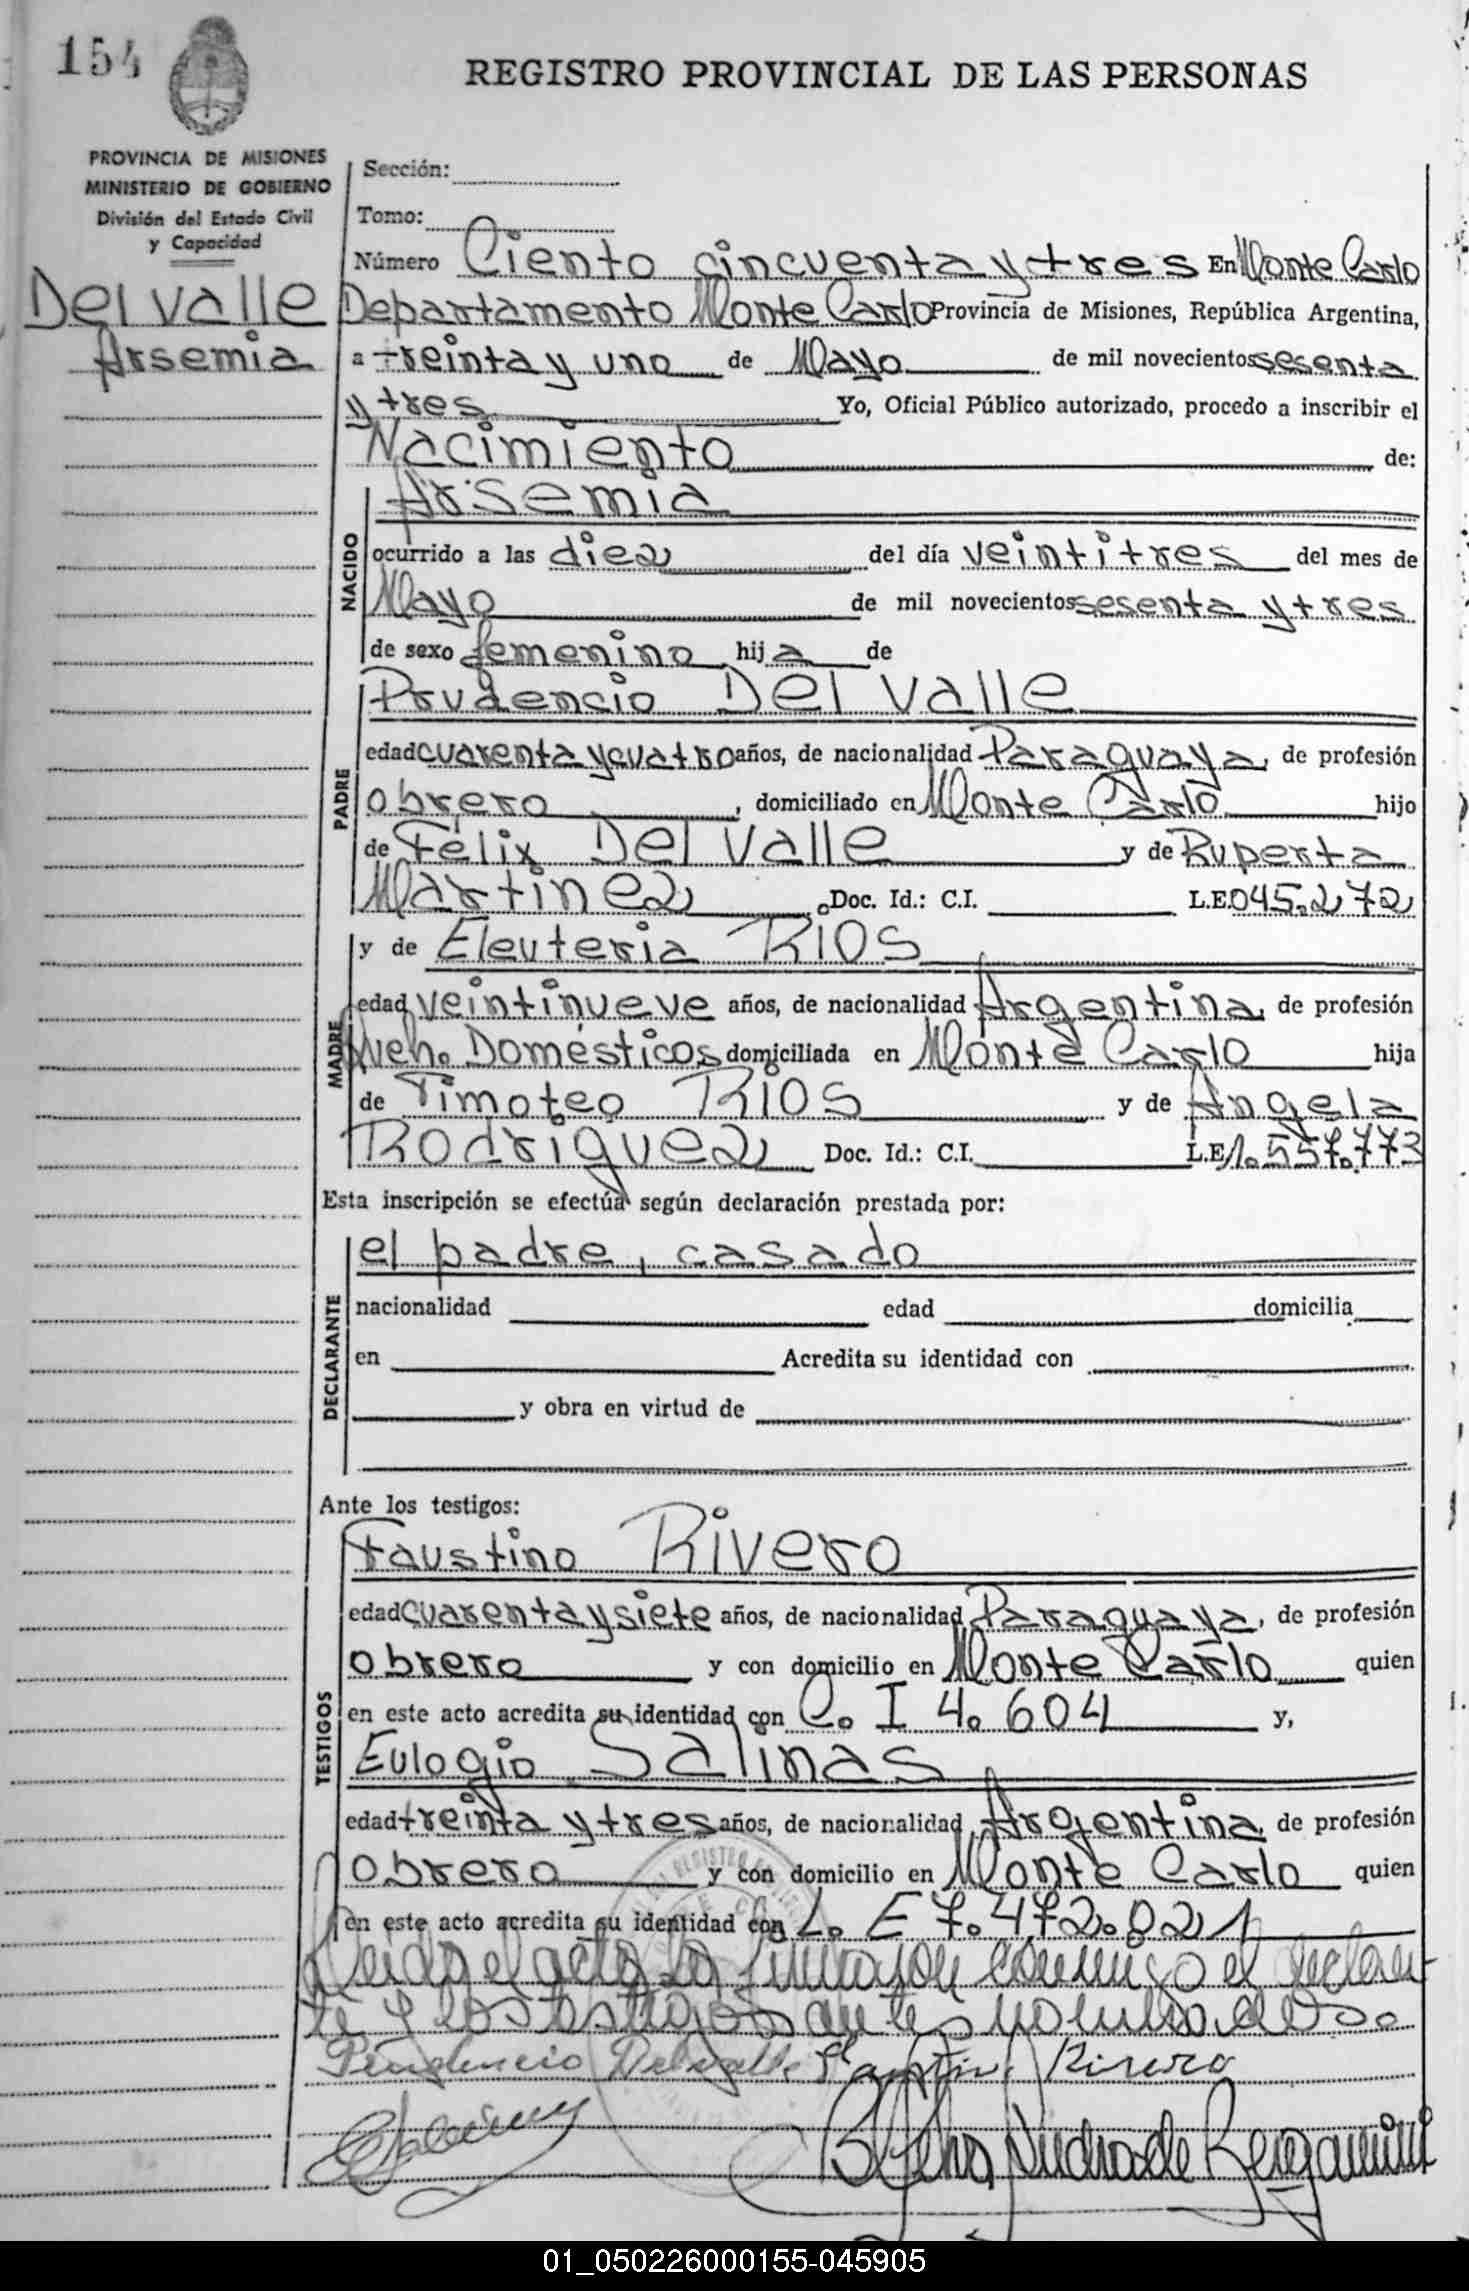 154
REGISTRO PROVINCIAL DE LAS PERSONAS
PROVINCIA DE MISIONES
MINISTERIO DE GOBIERNO
División del Estado Civil
y Capacidad
Del Valle
Arsemia
Sección:
Tomo:
Número Ciento cincuenta y tres En Monte Carlo
Departamento Monte Carlo Provincia de Misiones, República Argentina,
a treinta y uno de Mayo de mil novecientos sesenta
y tres Yo, Oficial Público autorizado, procedo a inscribir el
Nacimiento de:
NACIDO
Arsemia
ocurrido a las diez del día veintitres del mes de
Mayo de mil novecientos sesenta y tres
de sexo femenino hija de
PADRE
Prudencio Del Valle
edad cuarenta y cuatro años, de nacionalidad Paraguaya, de profesión
obrero, domiciliado en Monte Carlo hijo
de Félix Del Valle y de Ruperta
Martinez Doc. Id.: C.I. L.E. 045.272
MADRE
y de Eleuteria RIOS
edad veintinueve años, de nacionalidad Argentina, de profesión
Queh. Domésticos domiciliada en Monte Carlo hija
de Timoteo RIOS y de Angela
Rodriguez Doc. Id.: C.I. L.E. 1.557.773
Esta inscripción se efectúa según declaración prestada por:
DECLARANTE
el padre, casado
nacionalidad edad domicilia
en Acredita su identidad con
y obra en virtud de
Ante los testigos:
TESTIGOS
Faustino Rivero
edad cuarenta y siete años, de nacionalidad Paraguaya, de profesión
obrero y con domicilio en Monte Carlo quien
en este acto acredita su identidad con C. I 4.604 y,
Eulogio Salinas
edad treinta y tres años, de nacionalidad Argentina de profesión
obrero y con domicilio en Monte Carlo quien
en este acto acredita su identidad con L. E 7.472.021
Leida el acta la firmaron conmigo el declaran-
te y los testigos antes nombrados.
Prudencio Delvalle Faustino Rivero
ESalinas
Andrade Bergamini
01_050226000155-045905